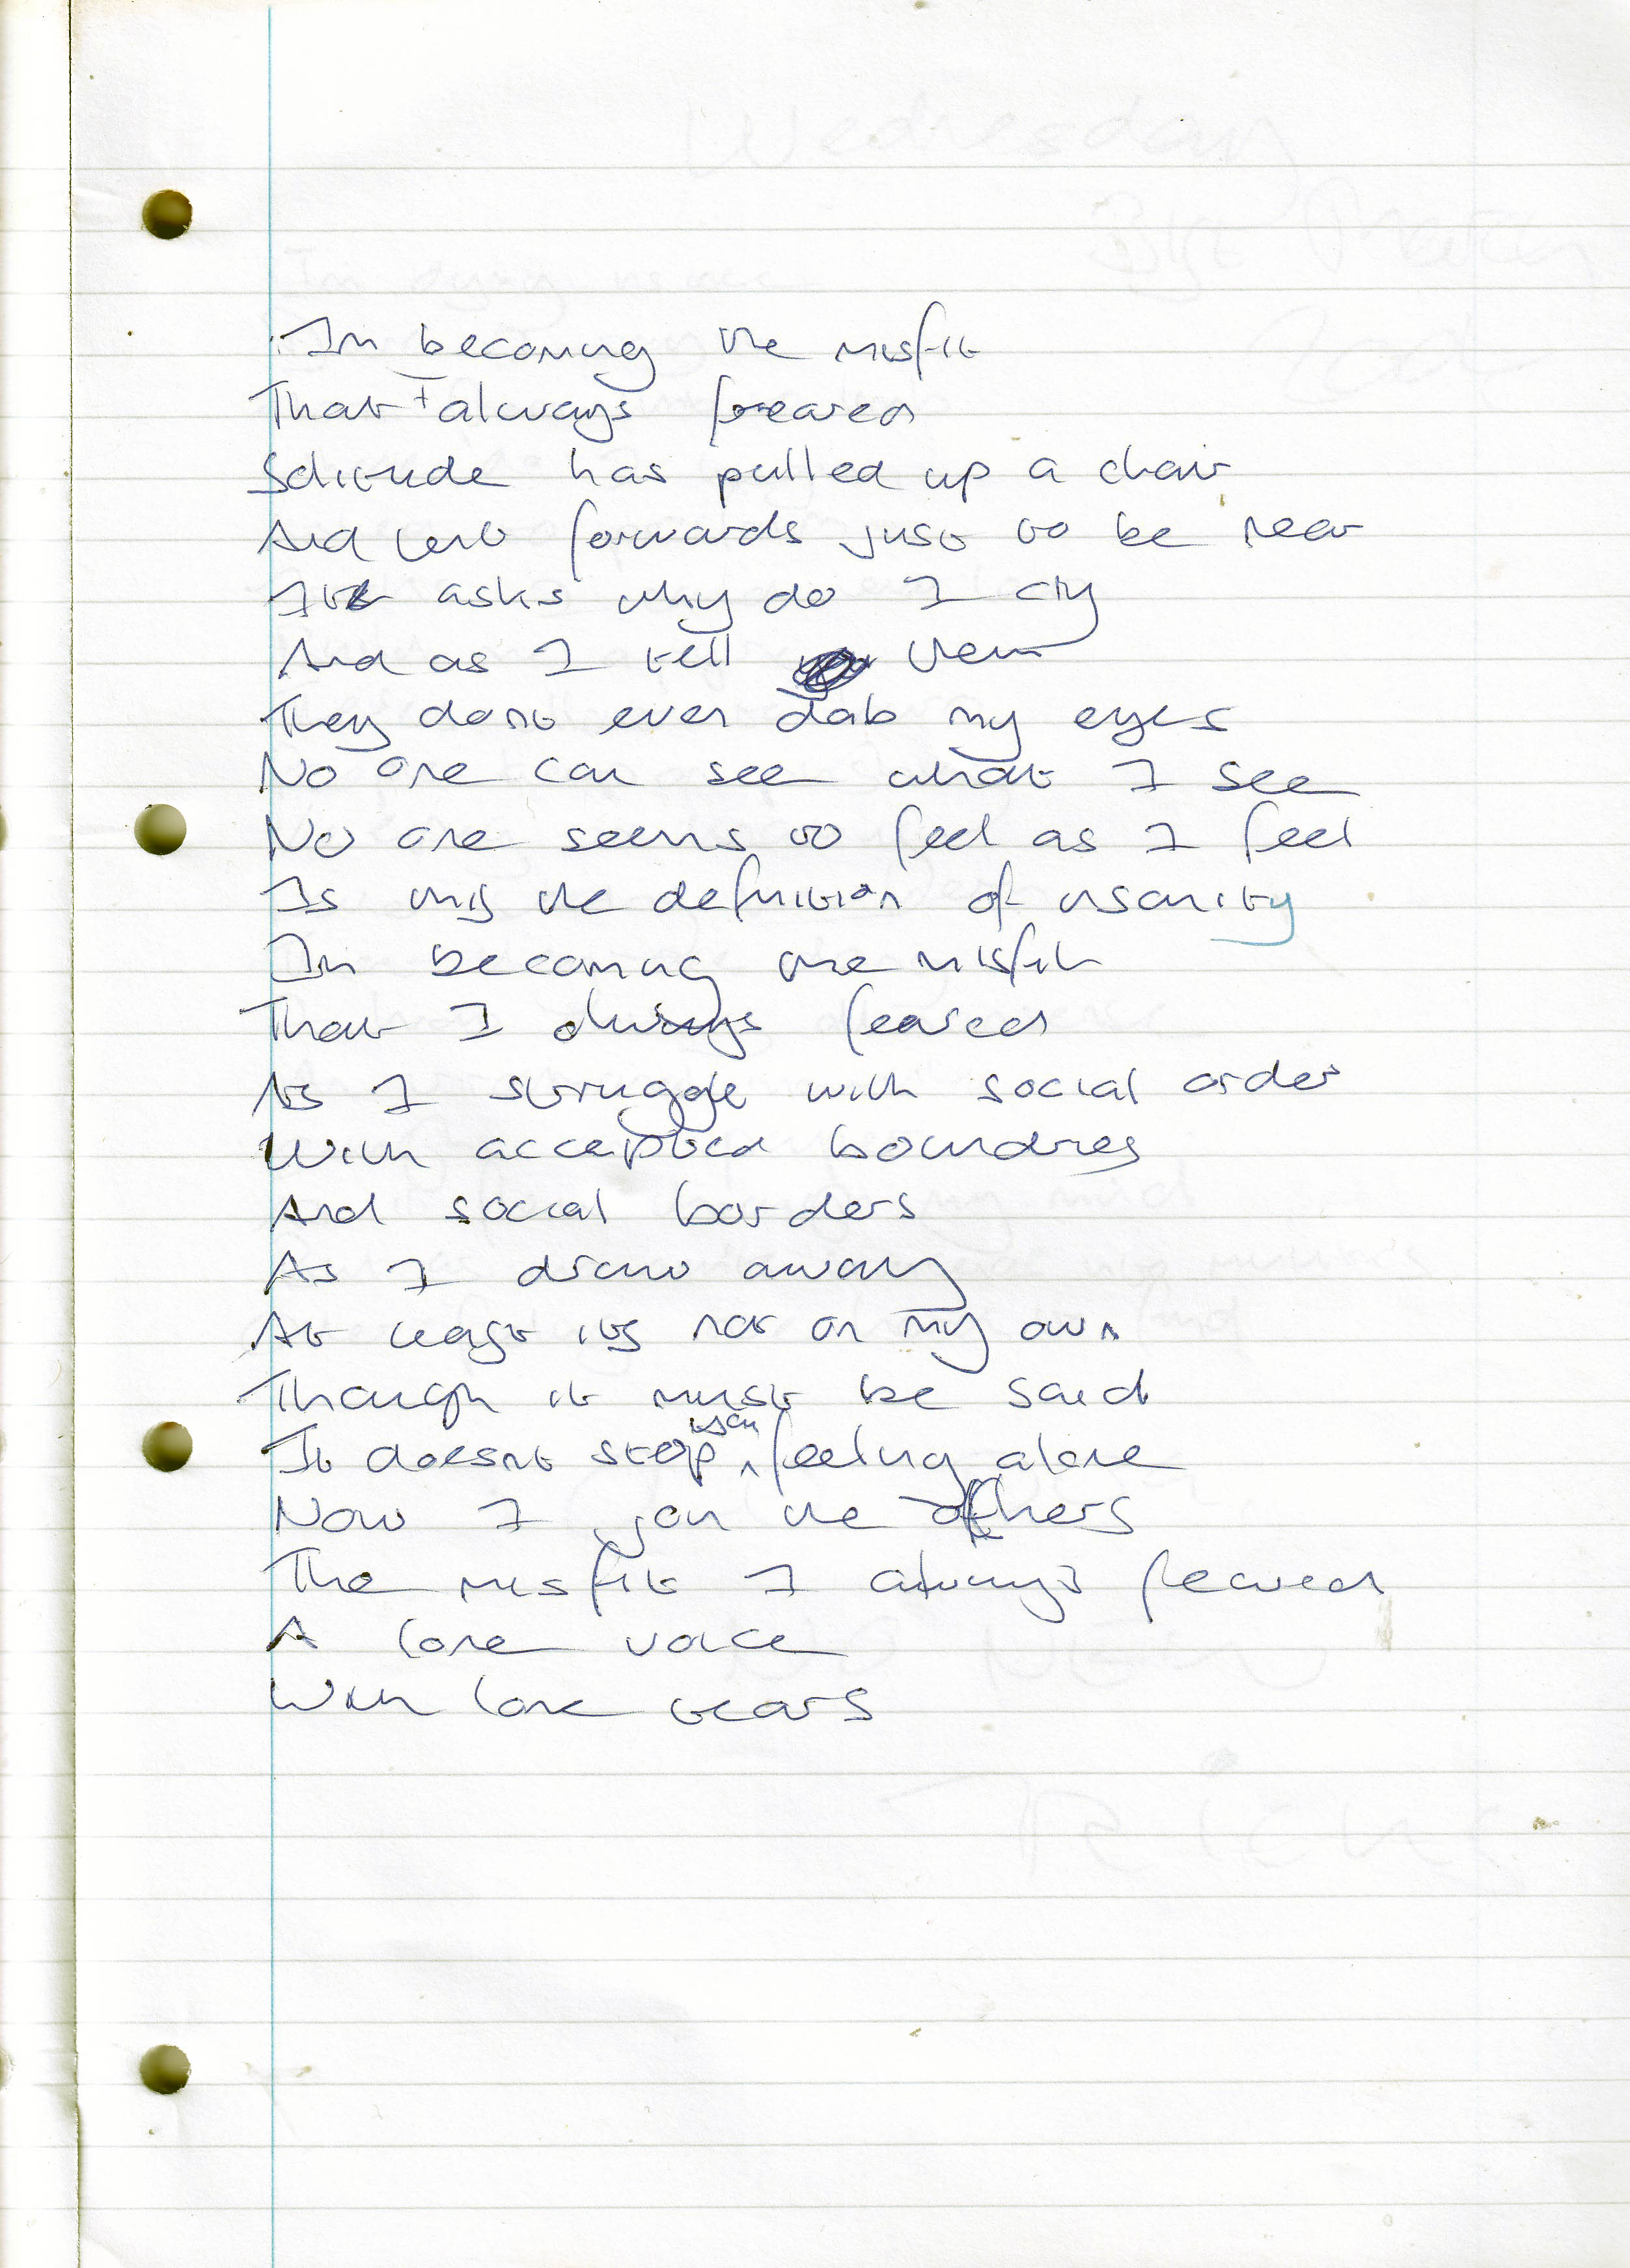 Im becoming the misfit
That I always feared
Solitude has pulled up a chair
And lent forwards just to be near
It asks why do I cry
And as I tell them
They dont even dab my eyes
No one can see what I see
No one seems to feel as I feel
Is this the definition of insanity
Im becoming the misfit
That I always feared
As I struggle with social order
With accepted boundries
And social borders
As I draw away
At least its not on my own
Though it must be said
It doesnt stop feeling alone
Now I join the others
The misfit I always feared
A lone voice
With lone tears